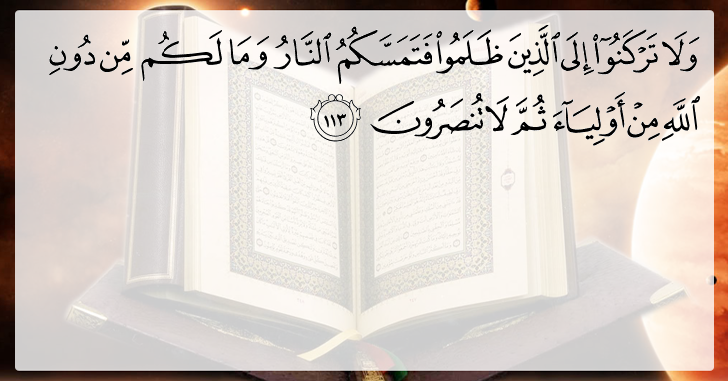 وَلَا تَرْكَنُوٓا۟ إِلَى ٱلَّذِينَ ظَلَمُوا۟ فَتَمَسَّكُمُ ٱلنَّارُ وَمَا لَكُم مِّن دُونِ
ٱللَّهِ مِنْ أَوْلِيَآءَ ثُمَّ لَا تُنصَرُونَ ١١٣